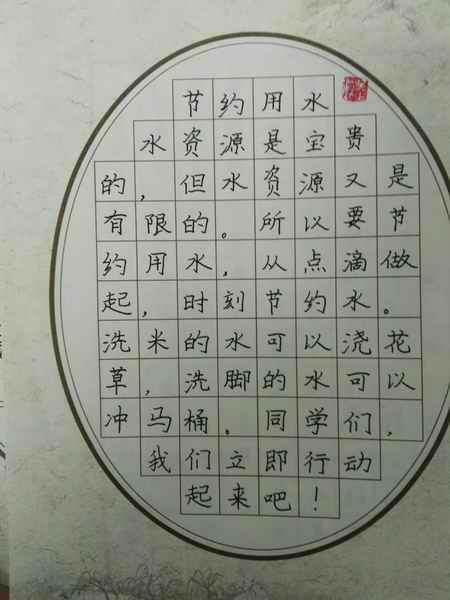 节约用水
水资源是宝贵
的，但水资源又是
有限的。所以要节
约用水，从点滴做
起，时刻节约水。
洗米的水可以浇花
草，洗脚的水可以
冲马桶。同学们，
我们立即行动
起来吧！